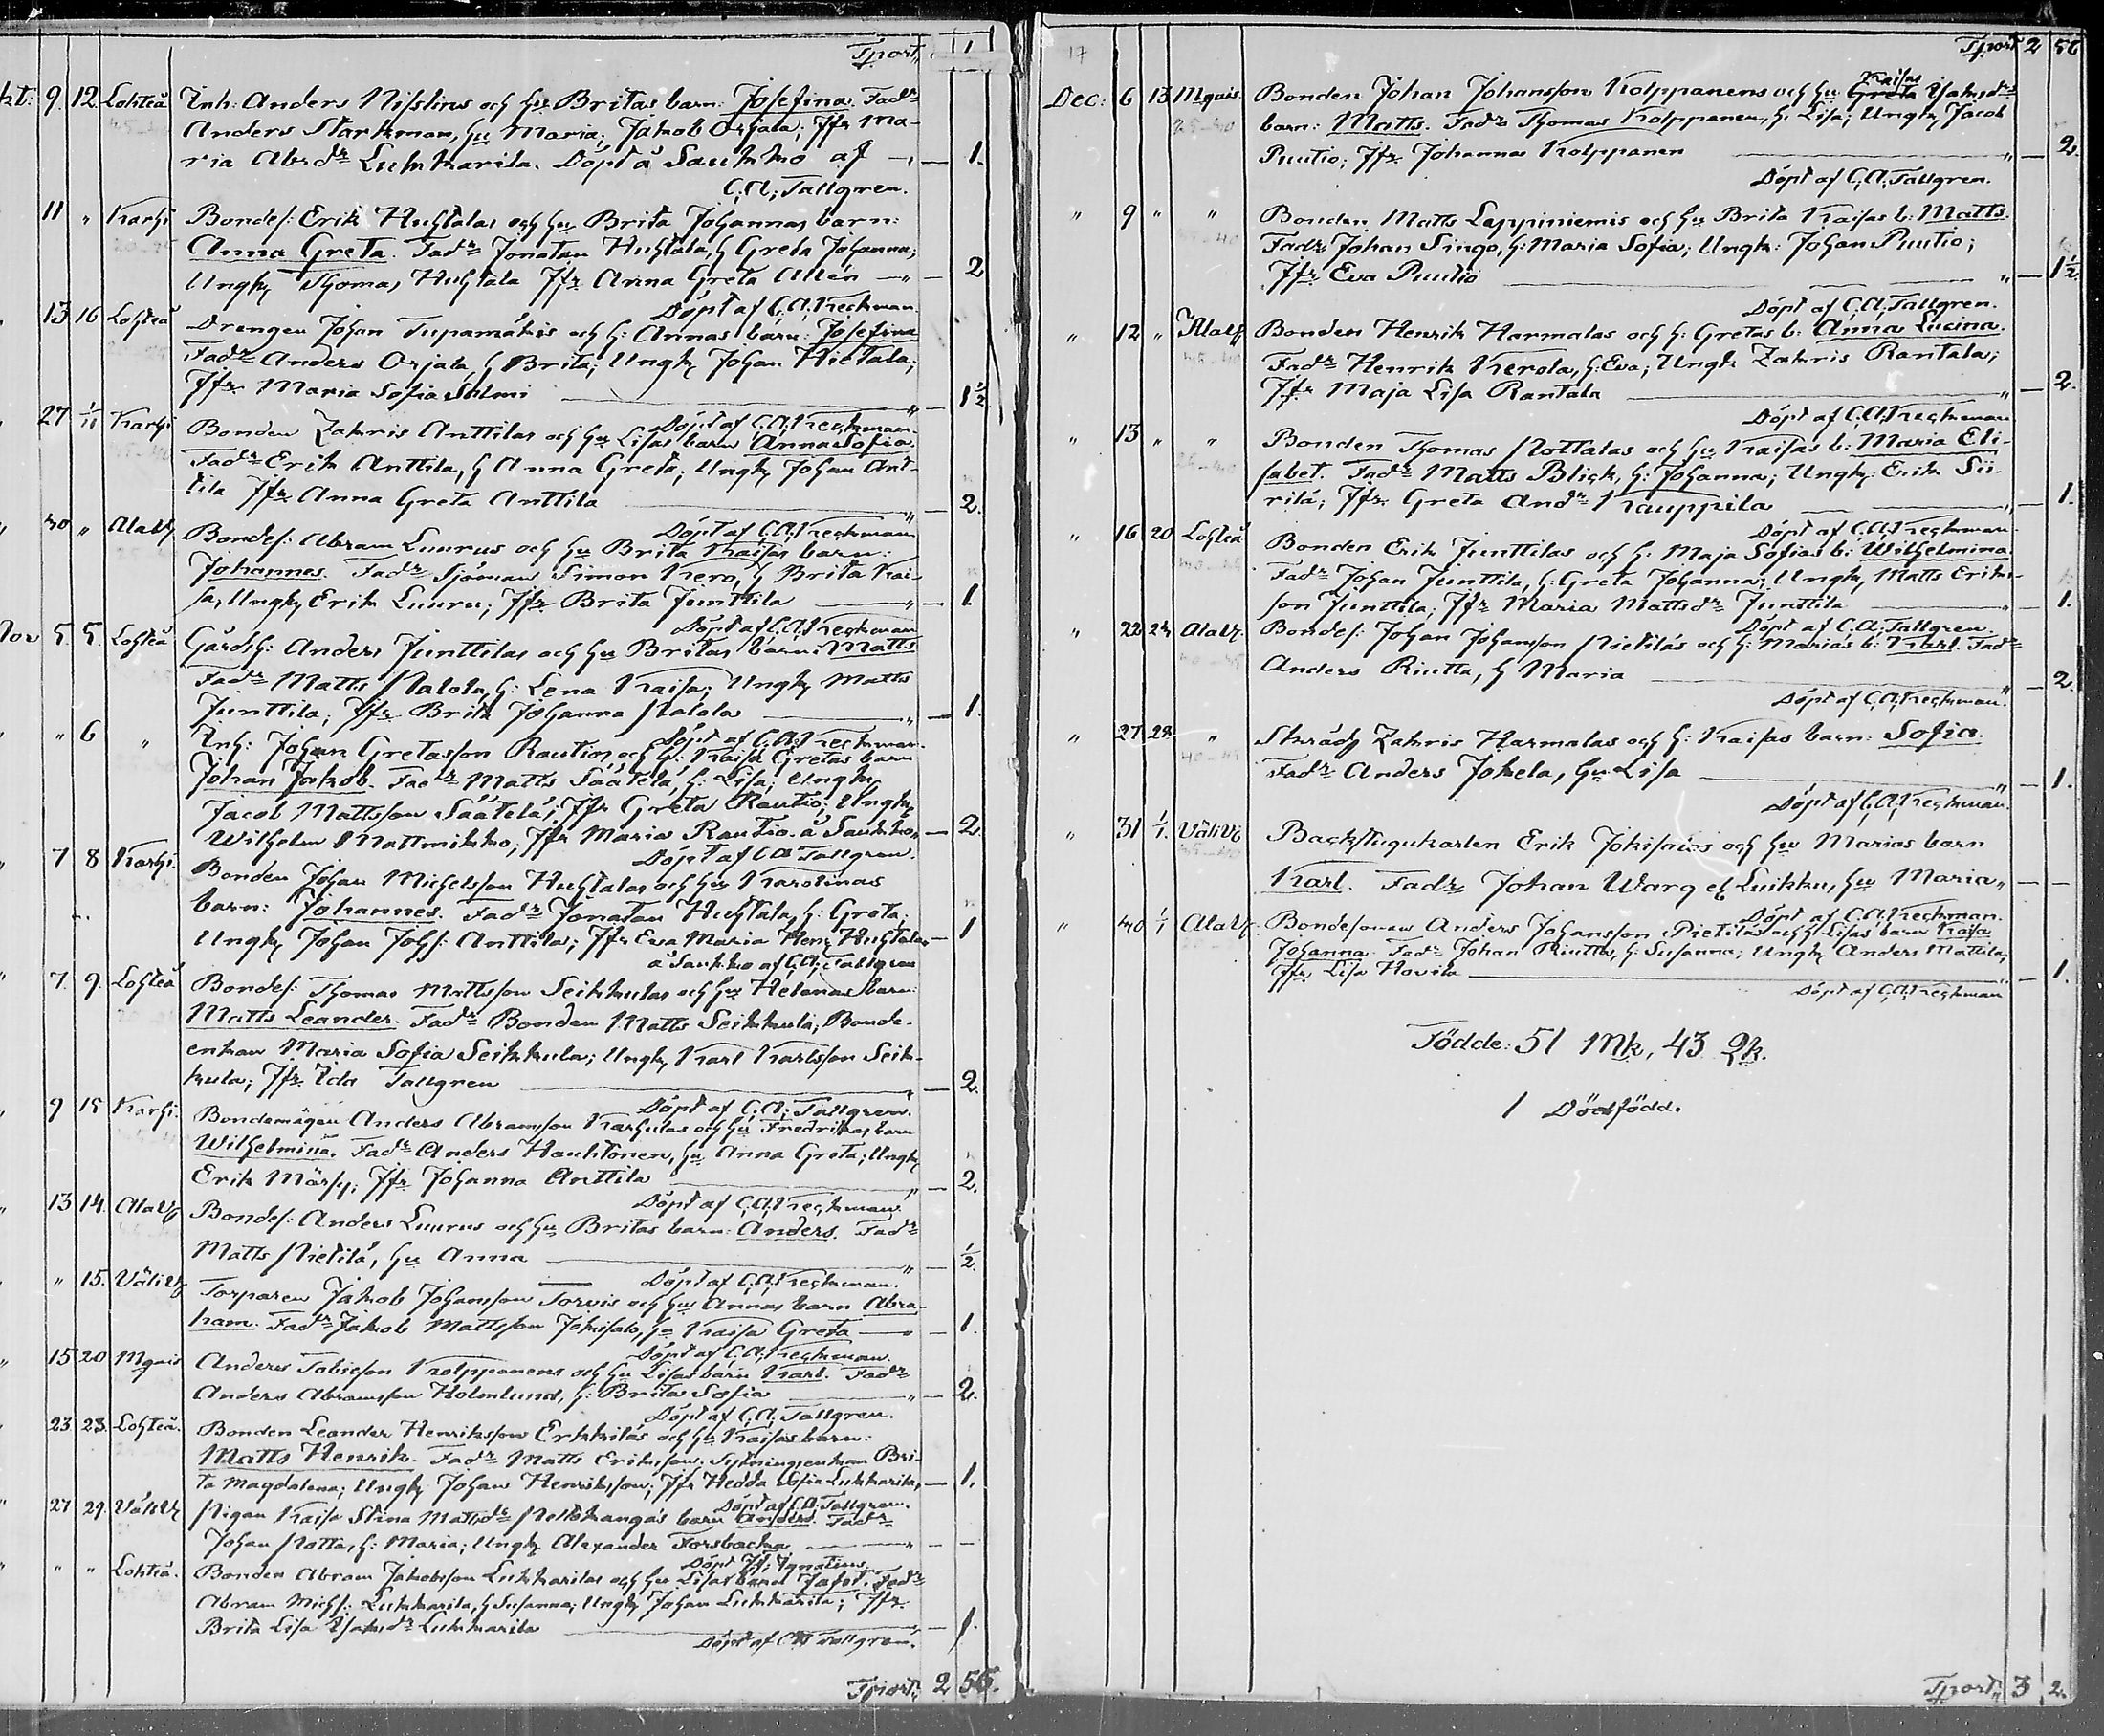 Tport. 1
kt: 9 12 Lohteå Inh: Anders Nisslins och hu Britas barn: Josefina. Fadr
Anders Starkman, hu Maria; Jakob Orjala; Jfr Ma-
ria Abrdr Lukkarila. Döpt å Saukko af — 1.
C. A. Tallgren.
11 " Karhi Bondes: Erik Huhtalas och hu Brita Johannas barn:
Anna Greta. Fadr Jonatan Huhtala, h Greta Johanna;
Ungk Thomas Huhtala Jfr Anna Greta Allén — " — 2
Döpt af C. A. Keckman.
13 16 Lohteå Drengen Johan Tupamäkis och h: Annas barn: Josefina
Fadr Anders Orjala, h Brita; Ungk Johan Hietala;
Jfr Maria Sofia Salmi — " — 1½
Döpt af C. A. Keckman.
27 1/11 Karhi Bonden Zakris Anttilas och hu Lisas barn Anna Sofia.
Fadr Erik Anttila, h Anna Greta; Ungk Johan Ant-
tila Jfr Anna Greta Anttila — " — 2.
Döpt af C. A. Keckman
30 " AlaVg Bondes: Abram Luurus och hu Brita Kaisas barn:
Johannes. Fadr Sjöman Simon Kero, h Brita Kai-
sa, Ungk Erik Luuru; Jfr Brita Junttila — " — 1
Döpt af C. A. Keckman
Nov 5. 5. Lohteå Gårdsh: Anders Junttilas och hu Britas barn: Matts
Fadr Matts Malola, h: Lena Kaisa; Ungk Matts
Junttila; Jfr Brita Johanna Malola — " — 1.
Döpt af C. A. Keckman.
" 6 " Inh: Johan Gretasson Rautios, och h: Kaisa Gretas barn
Johan Jakob. Fadr Matts Säätelä, h: Lisa; Ungk
Jacob Mattsson Säätelä; Jfr Greta Rautio; Ungk
Wilhelm Mattmikko; Jfr Maria Rautio. å Saukko, — 2.
Döpt af C A Tallgren.
7 8 Karhi. Bonden Johan Michelsson Huhtalas och hus Karolinas
barn: Johannes. Fadr Jonatan Huhtala, h: Greta;
Ungk Johan Johs: Anttila; Jfr Eva Maria Henr Huhtala — 1
å Saukko af C. A. Tallgren
7. 9. Lohteå Bondes: Thomas Mattsson Seikkulas och hus Helenas barn:
Matts Leander. Fadr Bonden Matts Seikkula; Bonde-
enkan Maria Sofia Seikkula; Ungk Karl Karlsson Seik-
kula; Jfr. Ida Tallgren — " — 2.
Döpt af C. A. Tallgren.
9 15 Karhi. Bondemågen Anders Abramsson Karhulas och hu Fredrikas barn
Wilhelmina. Fadr Anders Hauhtonen, hu Anna Greta; Ungk
Erik Märsy; Jfr Johanna Anttila — " — 2.
Döpt af C. A. Keckman.
13 14. AlaVg Bondes: Anders Luurus och hu Britas barn: Anders. Fadr
Matts Pietilä, hu Anna — " — ½.
Döpt af C. A. Keckman.
" 15. VäliVg Torparen Jakob Johansson Torvis och hus Annas barn Abra-
ham. Fadr Jakob Mattsson Jokisalo, hu Kaisa Greta — " — 1.
Döpt af C. A. Keckman.
15 20 Mquis Anders Tobiesson Kolppanens och hu Lisas barn Karl. Fadr
Anders Abramsson Holmlund, h: Brita Sofia — " — 2.
Döpt af C. A. Tallgren.
23 23. Lohteå. Bonden Leander Henriksson Erkkiläs och hu Kaisas barn:
Matts Henrik. Fadr Matts Eriksson. Sytningsenkan Bri-
ta Magdalena; Ungk Johan Henriksson; Jfr Hedda Sofia Lukkarila, — 1.
Döpt af C. A. Tallgren.
27 29. VäliVg Pigan Kaisa Stina Mattsdr barn Anders. Fadr
Johan Notta, h: Maria; Ungk Alexander Forsbacka — " — —
Döpt Ignatius.
" " Lohteå. Bonden Abram Jakobsson Lukkarilas och hu Lisas barn Jafet. Fadr
Abram Michs: Lukkarila, h Susanna; Ungk Johan Lukkarila; Jfr.
Brita Lisa Isaksdr Lukkarila — " — 1.
Döpt af C A Tallgren.
Tport. 2 56.
17
Tport 2 56
Dec: 6 13 Mquis. Bonden Johan Johansson Kolppanens och hu Greta Kaisas Isaksdrs
barn: Matts. Fadr Thomas Kolppanen, h. Lisa; Ungk Jacob
Puutio; Jfr. Johannas Kolppanen — " — 2.
Döpt af C. A. Tallgren.
" 9 " " Bonden Matts Lappiniemis och hu Brita Kaisas b: Matts.
Fadr Johan Singo, h: Maria Sofia; Ungk: Johan Puutio;
Jfr Eva Puutio — " — 1½
Döpt af C. A. Tallgren.
" 12 " Alavg Bonden Henrik Harmalas och h: Gretas b: Anna Lucina.
Fadr Henrik Kerola, h: Eva; Ungk Zakris Rantala;
Jfr Maja Lisa Rantala — " — 2.
Döpt af C. A. Keckman
" 13 " " Bonden Thomas Nottalas och hu Kaisas b: Maria Eli-
sabet. Fadr Matts Blick, h: Johanna; Ungk: Erik Sii-
rilä; Jfr. Greta Andr Kauppila — " — 1.
Döpt af C. A. Keckman.
" 16 20 Lohteå Bonden Erik Junttilas och h: Maja Sofias b: Wilhelmina.
Fadr Johan Junttila, h: Greta Johanna; Ungk Matts Eriks-
son Junttila; Jfr Maria Mattsdr Junttila — " — 1.
Döpt af C. A. Tallgren.
" 22 24 AlaVg. Bondes: Johan Johansson Pietiläs och h: Marias b: Karl. Fadr
Anders Riutta, h Maria — " — 2.
Döpt af C. A. Keckman.
" 27 28. " Skrädd Zakris Harmalas och h: Kaisas barn: Sofia.
Fadr Anders Jokela, hu Lisa — " — 1.
Döpt af C. A. Keckman.
" 31 1/1. VäliVg Backstugukarlen Erik Jokisalos och hus Marias barn
Karl. Fadr Johan Warg el Luikku, hu Maria " — —
Döpt af C. A. Keckman.
" 30 1/1 AlaVg. Bondesonen Anders Johansson Pietiläs och h Lisas barn Kaisa
Johanna. Fadr Johan Riutta, h: Susanna; Ungk Anders Mattila;
Jfr Lisa Hovila — " — 1.
Döpt af C. A. Keckman
Födde: 51 Mk, 43 Qk.
1 Dödfödd.
Tport. 3 2.